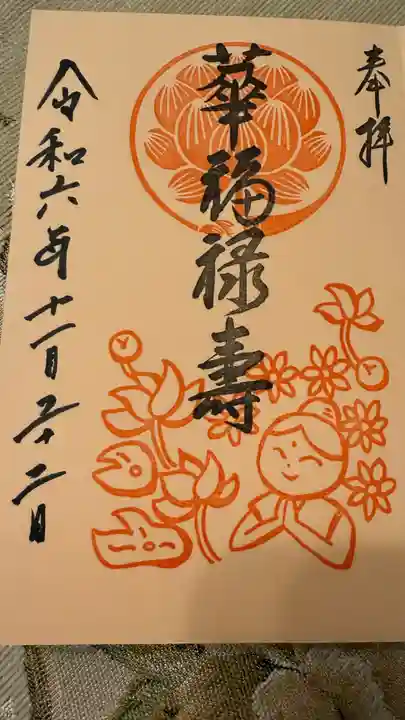 奉拝
華福禄壽
令和六年十一月二十二日